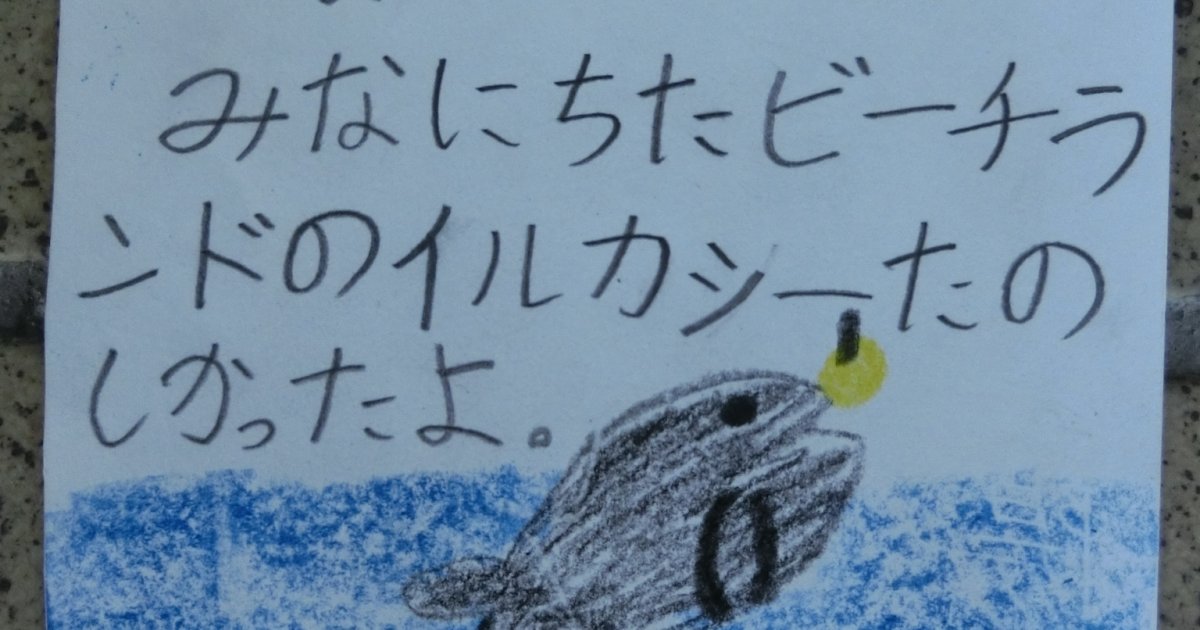 みなにちたビーチラ
ンドのイルカシーたの
しかったよ。